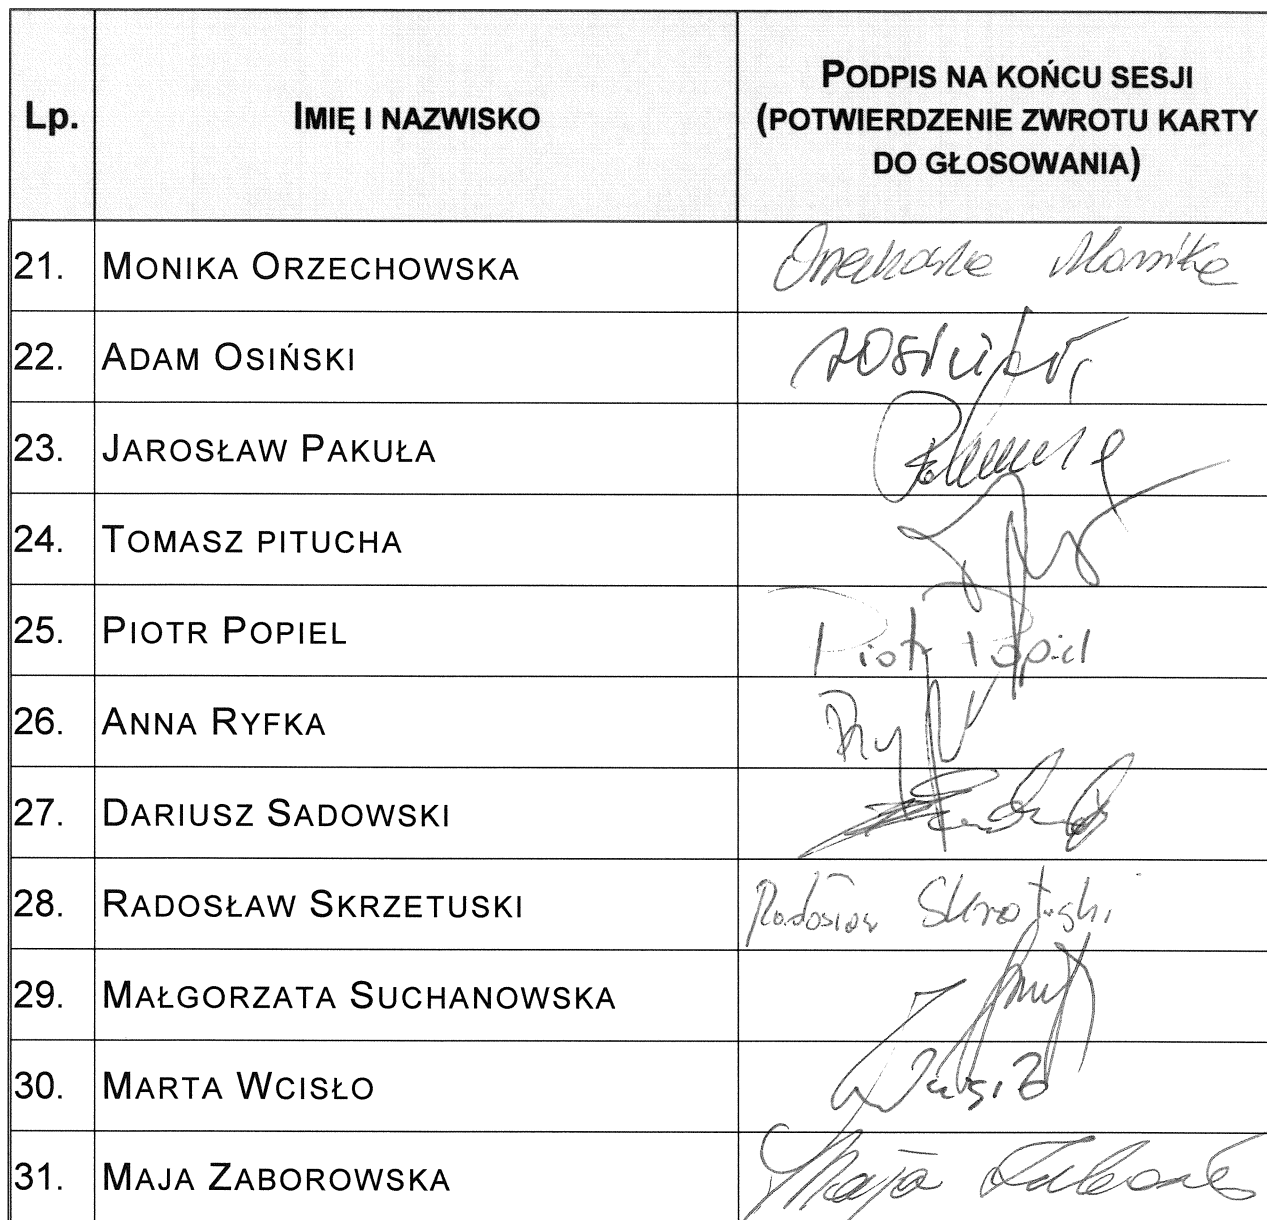 Lp.
IMIĘ I NAZWISKO
PODPIS NA KOŃCU SESJI
(POTWIERDZENIE ZWROTU KARTY
DO GŁOSOWANIA)
21. MONIKA ORZECHOWSKA Monika
22. ADAM OSIŃSKI
23. JAROSŁAW PAKUŁA
24. TOMASZ PITUCHA
25. PIOTR POPIEL Piotr Popiel
26. ANNA RYFKA
27. DARIUSZ SADOWSKI
28. RADOSŁAW SKRZETUSKI Radosław
29. MAŁGORZATA SUCHANOWSKA
30. MARTA WCISŁO
31. MAJA ZABOROWSKA Maja